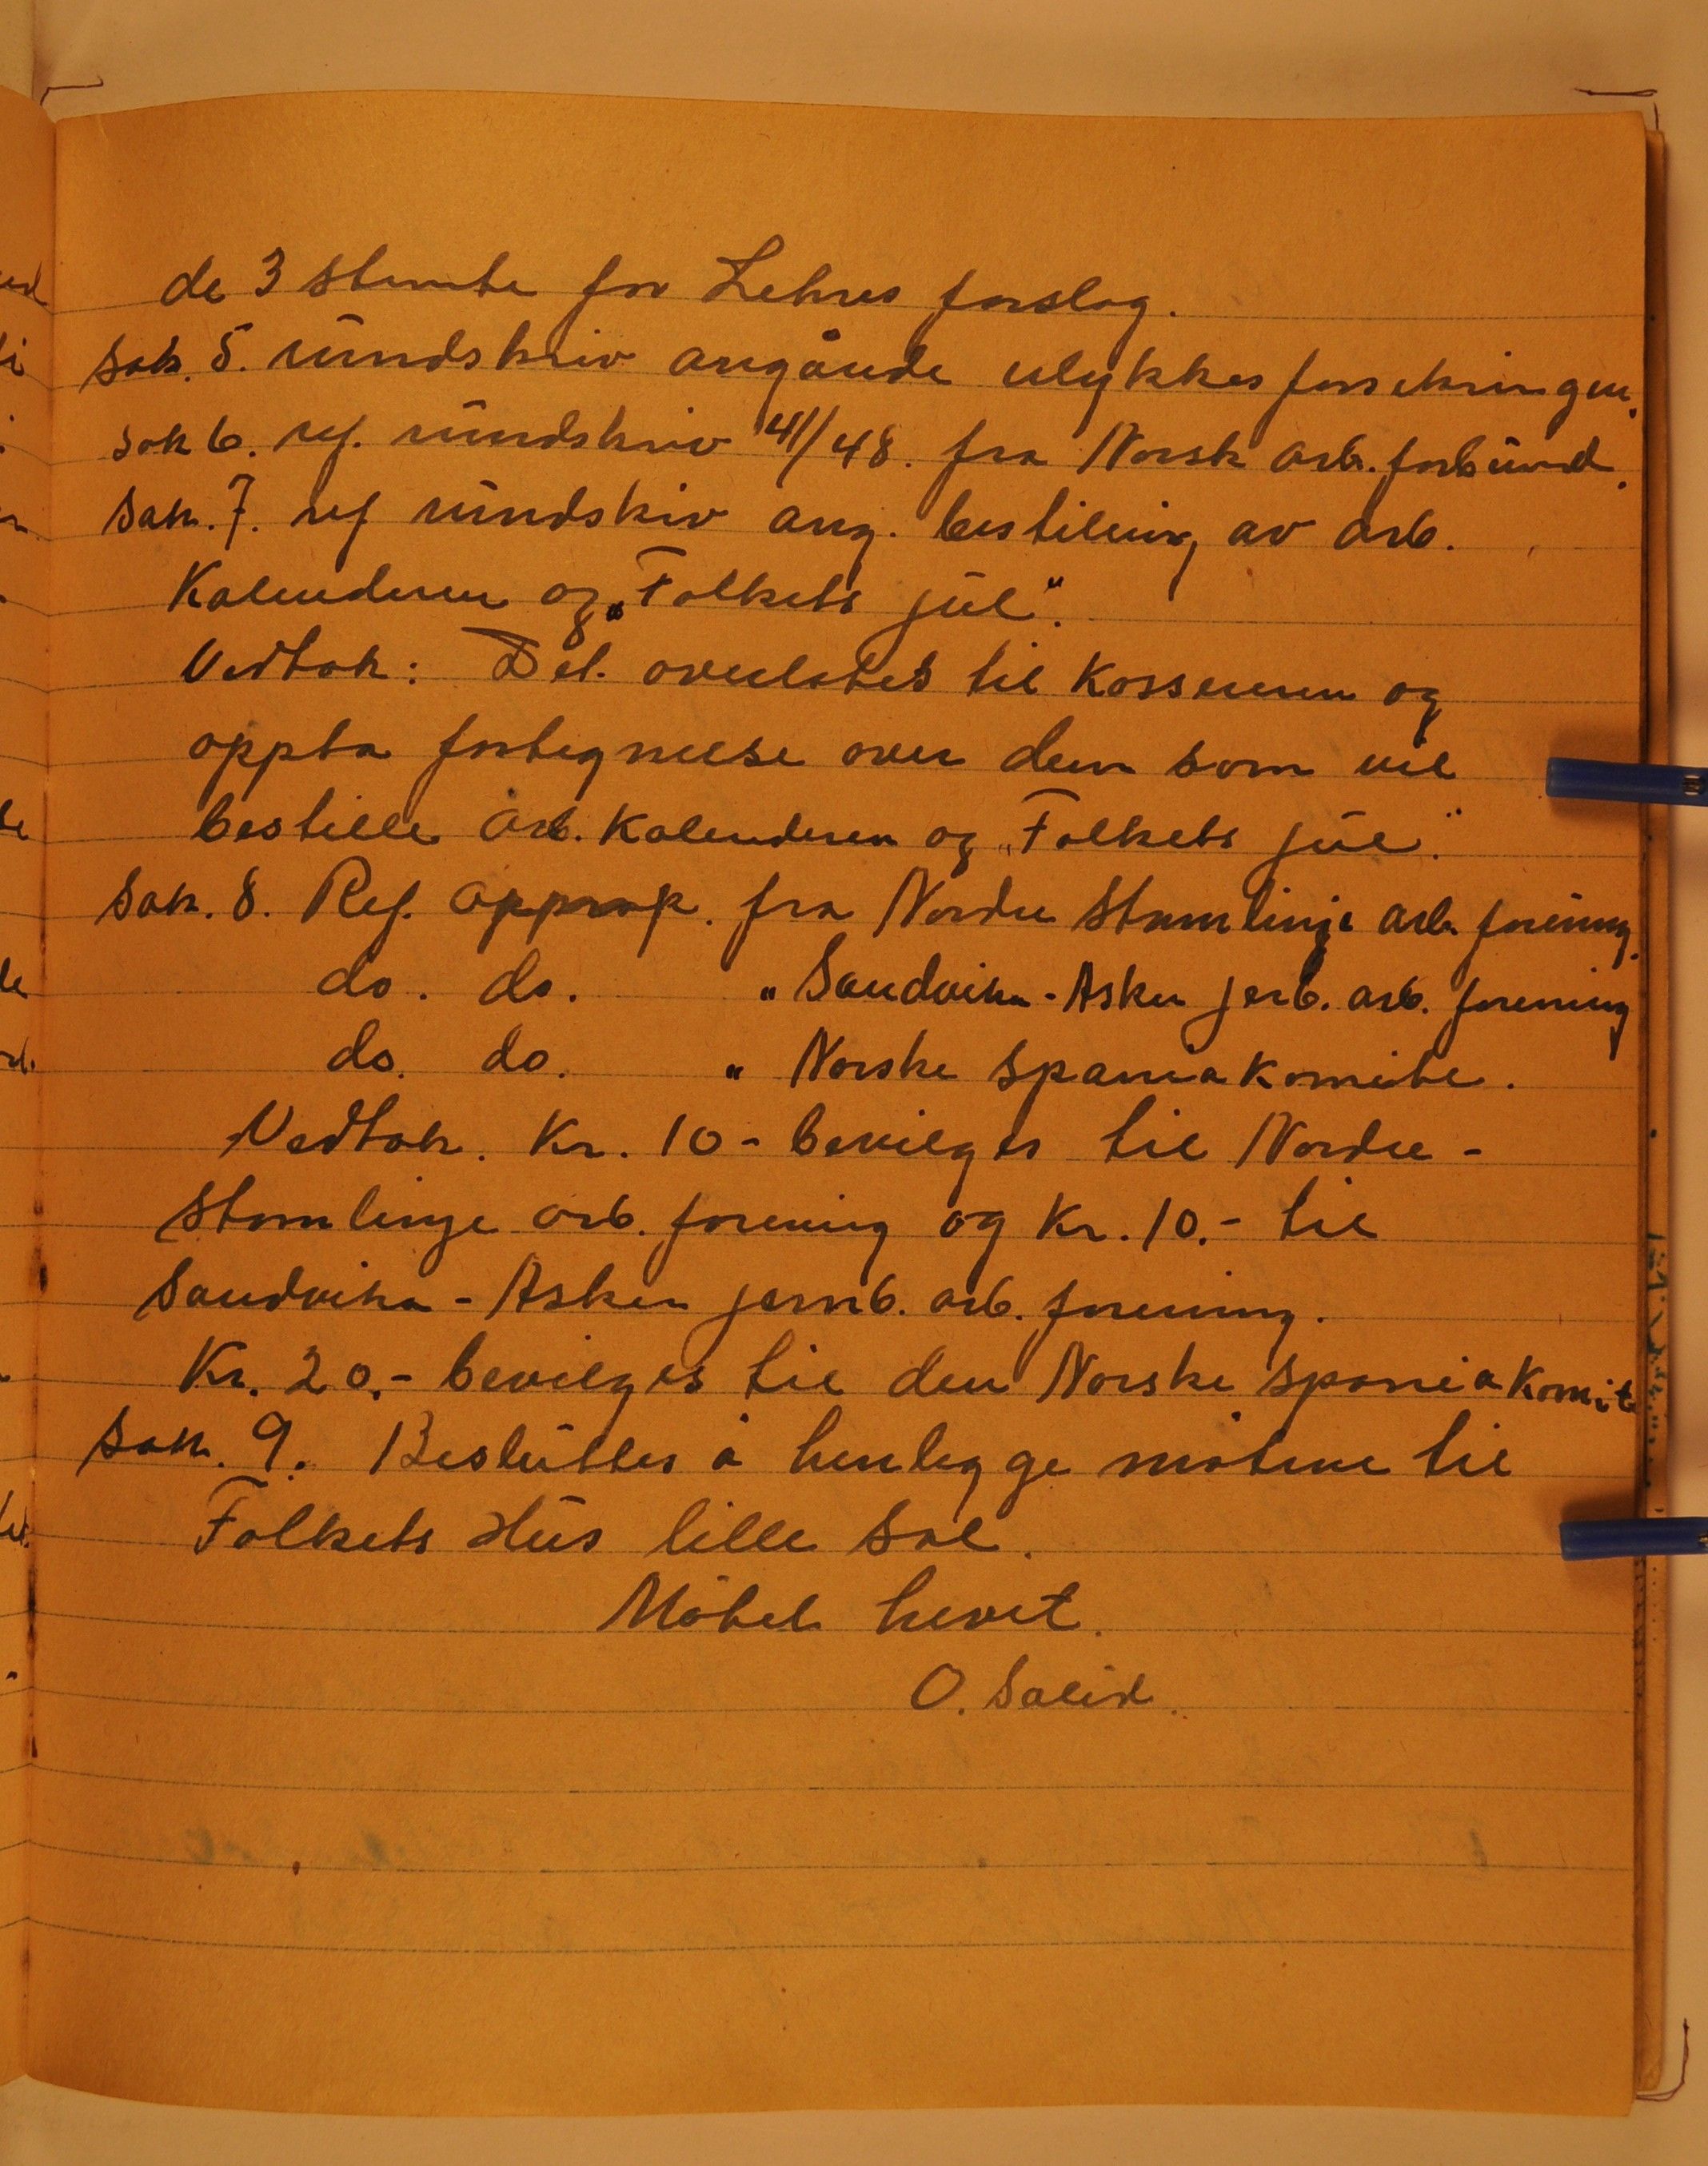 de 3 stemte for Lehnes forslag.
Sak. 5. rundskriv angående ulykkesforsekringen.
Sak 6. ref. rundskriv 41/48. fra Norsk arb. forbund.
Sak. 7. ref rundskriv ang. bestilling av arb.
Kalenderen og „Folkets jul".
Vedtak: Det. overlates til Kasseren og
oppta fortegnelse over dem som vil
bestille Arb. Kalenderen og „Folkets jul".
Sak. 8. Ref. opprop. fra Nordre Stamlinje arb. forening.
do. do. " Sandvika - Asker jerb. arb. forening
do. do. " Norske Spaniakomite.
Vedtak. Kr. 10 - bevilges til Nordre -
Stamlinje arb. forening og Kr. 10.- til
Sandvika - Asker jernb. arb. forening.
Kr. 20.- bevilges til den Norske Spaniakomite
Sak. 9. Besluttes å henlegge møtene til
Folkets Hus lille sal.
Møtet hevet.